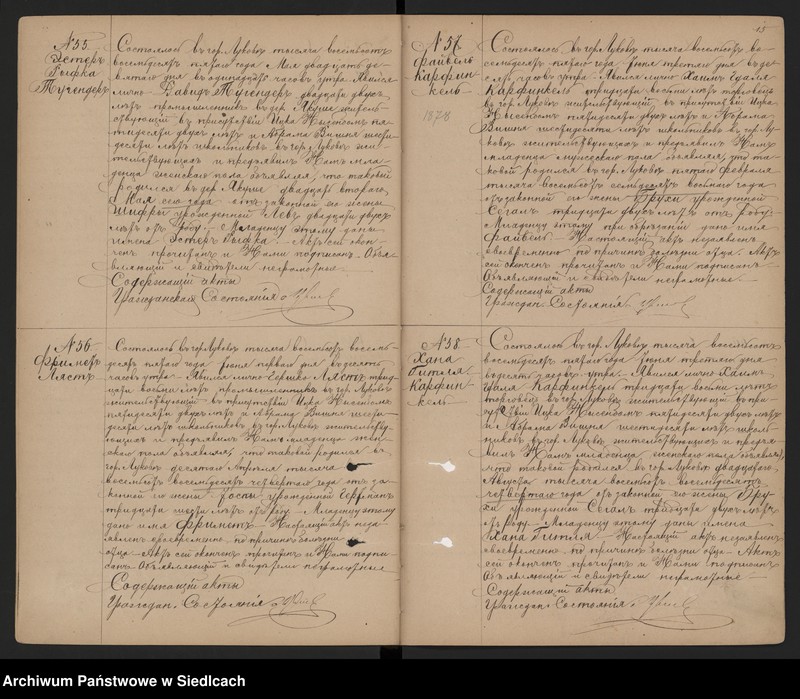 № 55.
Эстеръ
Рыфка
Тугендеръ
Состоялось въ гор. Луковѣ тысяча восемьсотъ
восемьдесятъ пятаго года Мая двадцать де-
вятаго дня въ одинадцать часовъ утра. Явился
лично Давидъ Тугендеръ двадцати двухъ
лѣтъ промышленникъ въ дер. Якуше житель-
ствующій въ присутствіи Ицка Нысенгольцъ пя-
тидесяти двухъ лѣтъ и Абрама Вишня шести-
десяти лѣтъ школьниковъ въ гор. Луковѣ жи-
тельствующихъ и предъявилъ Намъ мла-
денца женскаго пола объявляя, что таковый
родился въ дер. Якуше двадцать втораго
Мая сего года отъ законной его жены
Шифры урожденной Левъ двадцати двухъ
лѣтъ отъ роду. Младенцу этому даны
имена Эстеръ Рыфка. Актъ сей окон-
ченъ прочитанъ и Нами подписанъ. Объя-
вляющій и свидѣтели неграмотные.
Содержащій акты
Гражданскаго Состоянія
№ 56.
Фриметъ
Лястъ
Состоялось въ гор. Луковѣ тысяча восемьсотъ восемь-
десятъ пятаго года Іюня перваго дня въ десять
часовъ утра. Явился лично Гершко Лястъ трид-
цати восьми лѣтъ промышленникъ въ гор. Луковѣ
жительствующій въ присутствіи Ицка
пятидесяти двухъ лѣтъ и Абрама Вишня шести-
десяти лѣтъ школьниковъ въ гор. Луковѣ жительству-
ющихъ и предъявилъ Намъ младенца жен-
скаго пола объявляя, что таковый родился въ
гор. Луковѣ десятаго Апрѣля тысяча
восемьсотъ восемьдесятъ четвертаго года отъ за-
конной его жены урожденной
тридцати шести лѣтъ отъ роду. Младенцу этому
дано имя Фриметъ. Настоящій актъ неза-
явленъ своевременно по причинѣ болѣзни
отца. Актъ сей оконченъ прочитанъ и Нами подпи-
санъ. Объявляющій и свидѣтели неграмотные
Содержащій акты
Граждан. Состоянія
15
№ 57.
Файвель
Карфин-
кель
1878
Состоялось въ гор. Луковѣ тысяча восемьсотъ во-
семьдесятъ пятаго года Іюня третьяго дня въ де-
сять часовъ утра. Явился лично Хаимъ
Карфинкель тридцати восьми лѣтъ торговецъ
въ гор. Луковѣ жительствующій, въ присутствіи Ицка
пятидесяти двухъ лѣтъ и Абрама
Вишня шестидесяти лѣтъ школьниковъ въ гор. Лу-
ковѣ жительствующихъ и предъявилъ Намъ
младенца мужескаго пола объявляя, что та-
ковый родился въ гор. Луковѣ пятаго Февраля
тысяча восемьсотъ семьдесятъ восьмаго года
отъ законной его жены Брухи урожденной
Сегалъ тридцати двухъ лѣтъ отъ роду.
Младенцу этому при обрѣзаніи дано имя
Файвель. Настоящій актъ незаявленъ
своевременно по причинѣ болѣзни отца. Актъ
сей оконченъ прочитанъ и Нами подписанъ.
Объявляющій и свидѣтели неграмотные.
Содержащій акты
Граждан. Состоянія
№ 58.
Хана
Гитля
Карфин-
кель
Состоялось въ гор. Луковѣ тысяча восемьсотъ
восемьдесятъ пятаго года Іюня третьяго дня
въ десять часовъ утра. Явился лично Хаимъ
Карфинкель тридцати восьми лѣтъ
торговецъ въ гор. Луковѣ жительствующій въ при-
сутствіи Ицка пятидесяти двухъ лѣтъ
и Абрама Вишня шестидесяти лѣтъ школь-
никовъ въ гор. Луковѣ жительствующихъ и предъя-
вилъ Намъ младенца женскаго пола объявляя,
что таковый родился въ гор. Луковѣ двадцатаго
Августа тысяча восемьсотъ восемьдесятъ
четвертаго года отъ законной его жены Бру-
хи урожденной Сегалъ тридцати двухъ лѣтъ
отъ роду. Младенцу этому даны имена
Хана Гитля. Настоящій актъ незаявленъ
своевременно по причинѣ болѣзни отца. Актъ
сей оконченъ прочитанъ и Нами подписанъ
Объявляющій и свидѣтели неграмотные.
Содержащій акты
Граждан. Состоянія
Archiwum Państwowe w Siedlcach